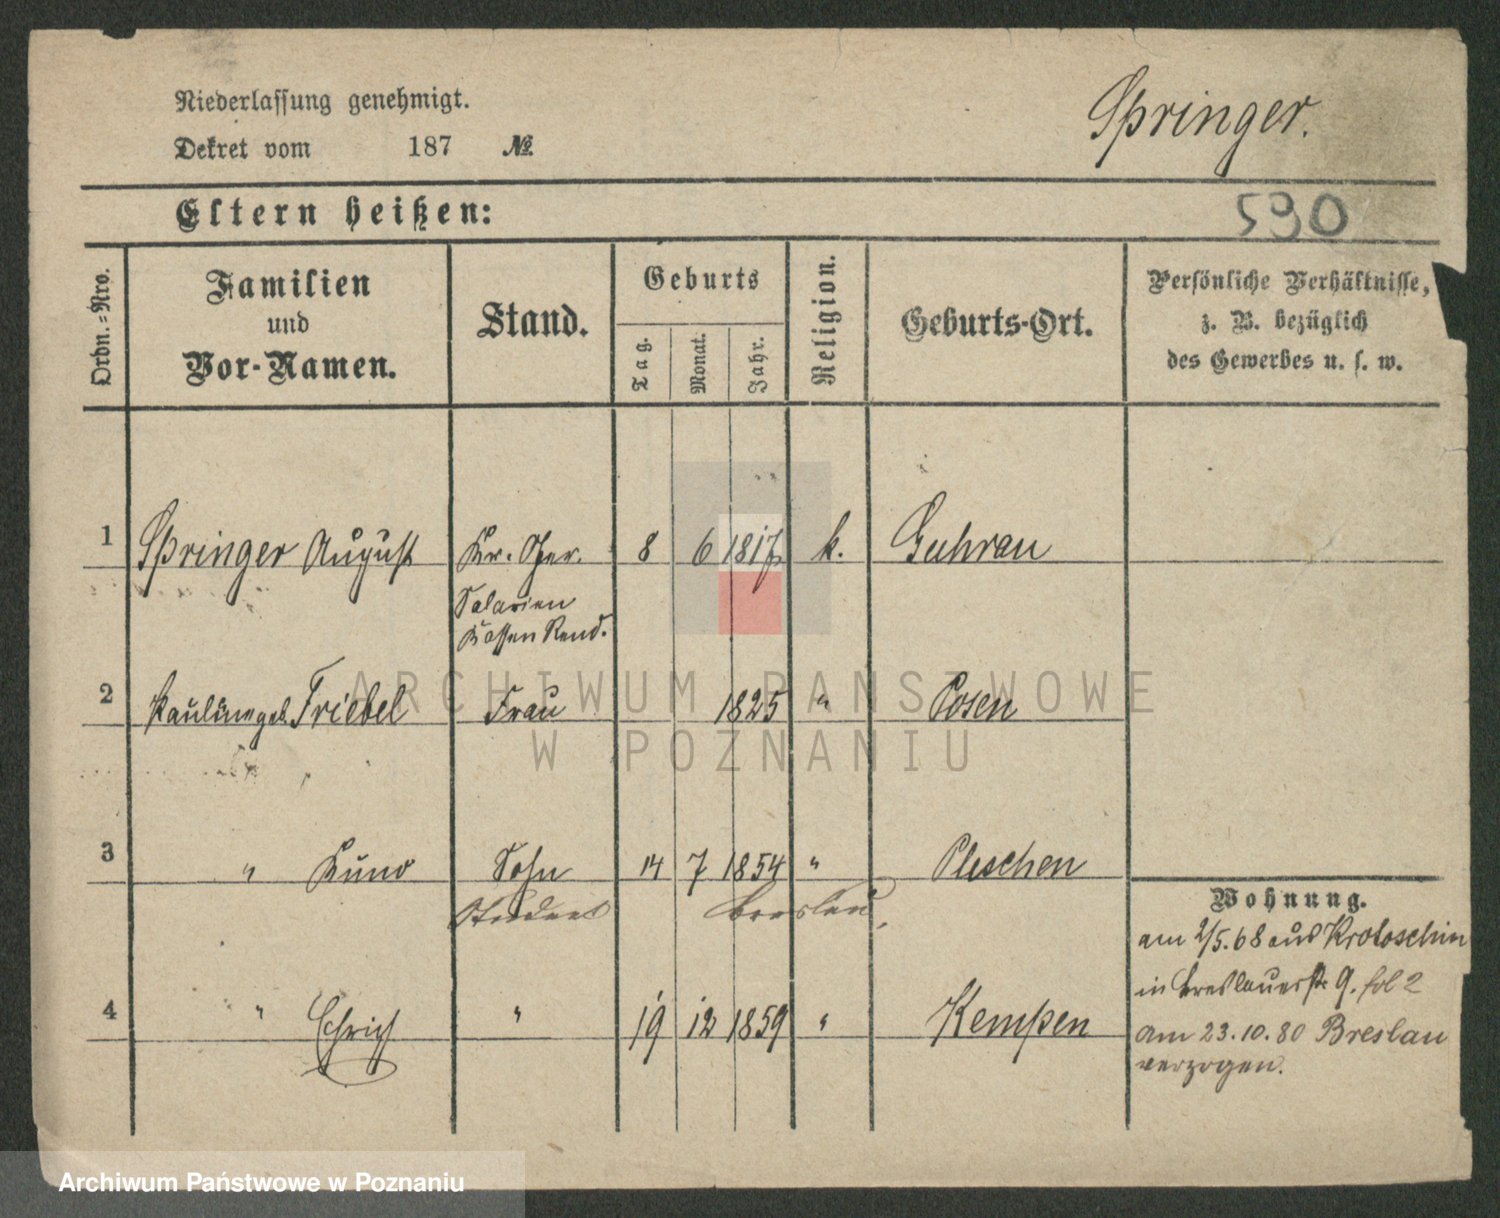 Niederlassung genehmigt.
Springer.
Dekret vom 187 №
Eltern heißen:
590
Ordn.-Nro.
Familien und Vor-Namen.
Stand.
Geburts
Tag.
Monat.
Jahr.
Religion.
Geburts-Ort.
Persönliche Verhältnisse,
z. B. bezüglich
des Gewerbes u. s. w.
1 Springer August Kr. Ger. 8 6 1817 k. Guhrau
Salarien
Kassen Rend.
2 Pauline geb. Friebel Frau 1825 " Posen
3 " Kuno Sohn 14 7 1854 " Pleschen
Student Breslau
4 " " 19 12 1859 " Kempen
Wohnung.
am 2/5.68 aus Krotoschin
in Breslauerstr 9. fol 2
am 23.10.80 Breslau
verzogen.
ARCHIWUM PAŃSTWOWE
W POZNANIU
Archiwum Państwowe w Poznaniu